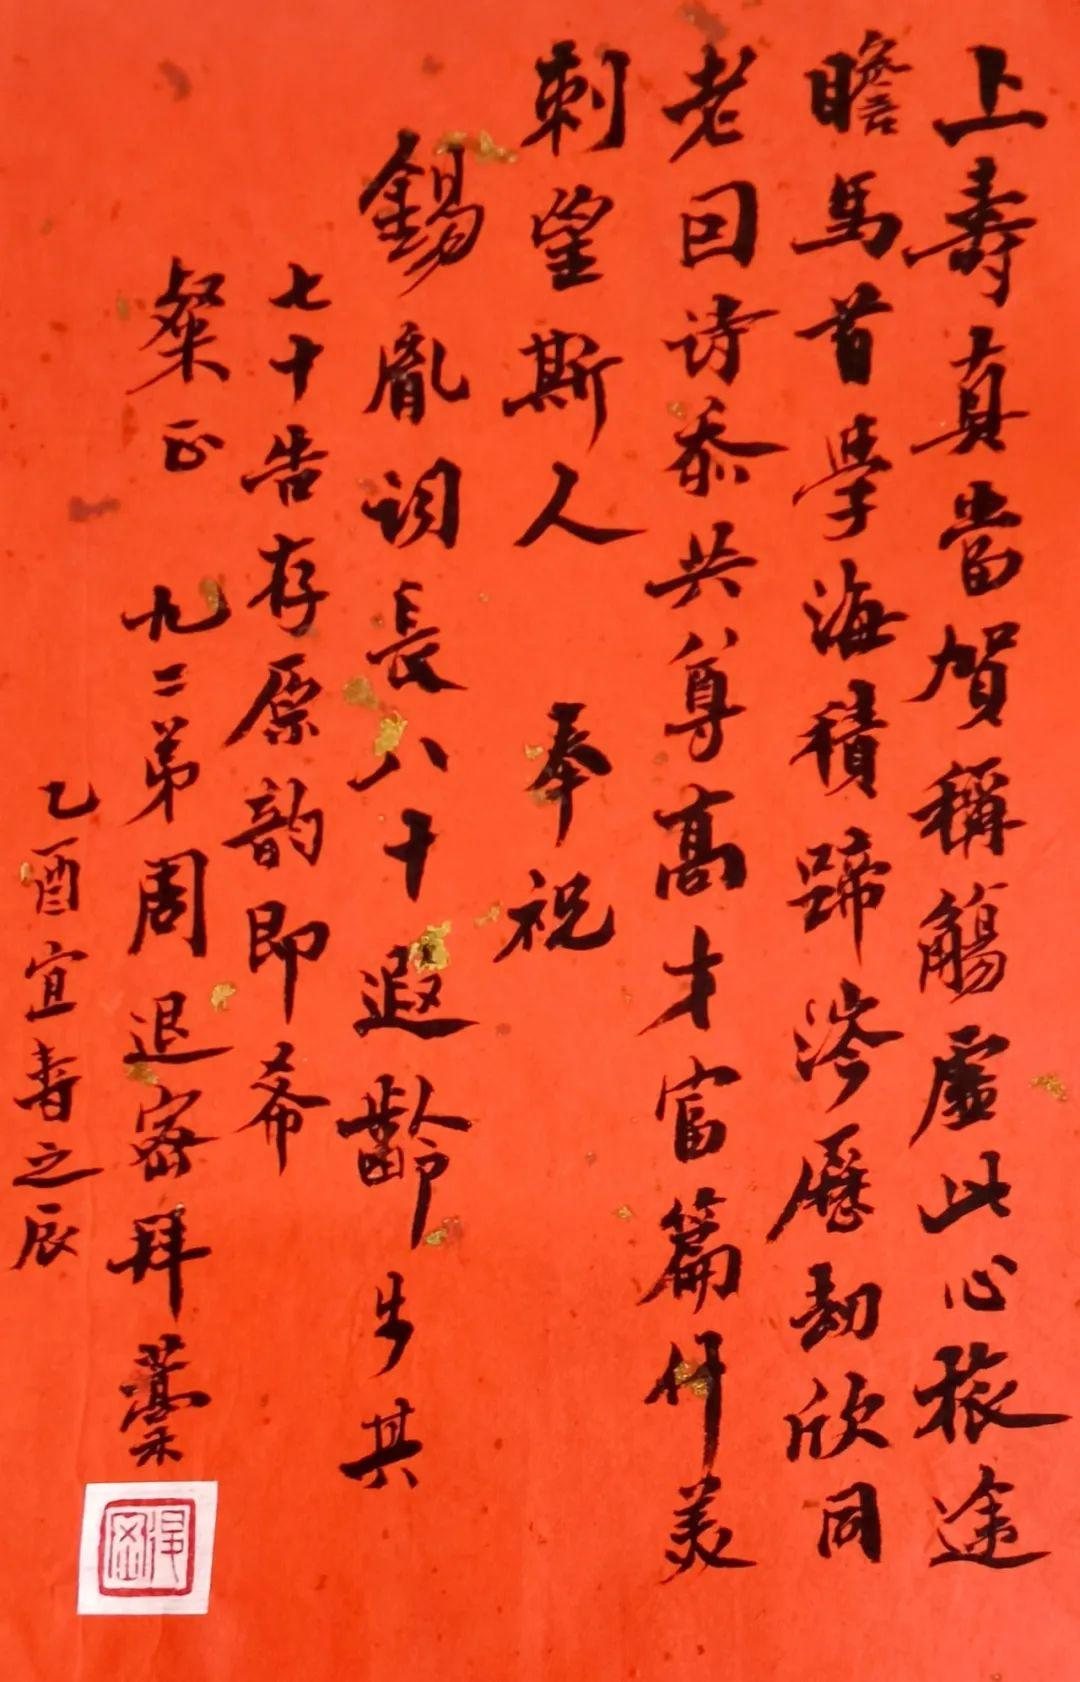 上壽真當賀稱觴虛此心旅途
瞻馬首學海積蹄涔歷劫欣同
老回诗忝共尊高才富篇什美
刺望斯人 奉祝
錫胤词長八十遐齡步其
七十告存原韵即希
粲正 九二弟周退密拜藁
乙酉宜春之辰
退密